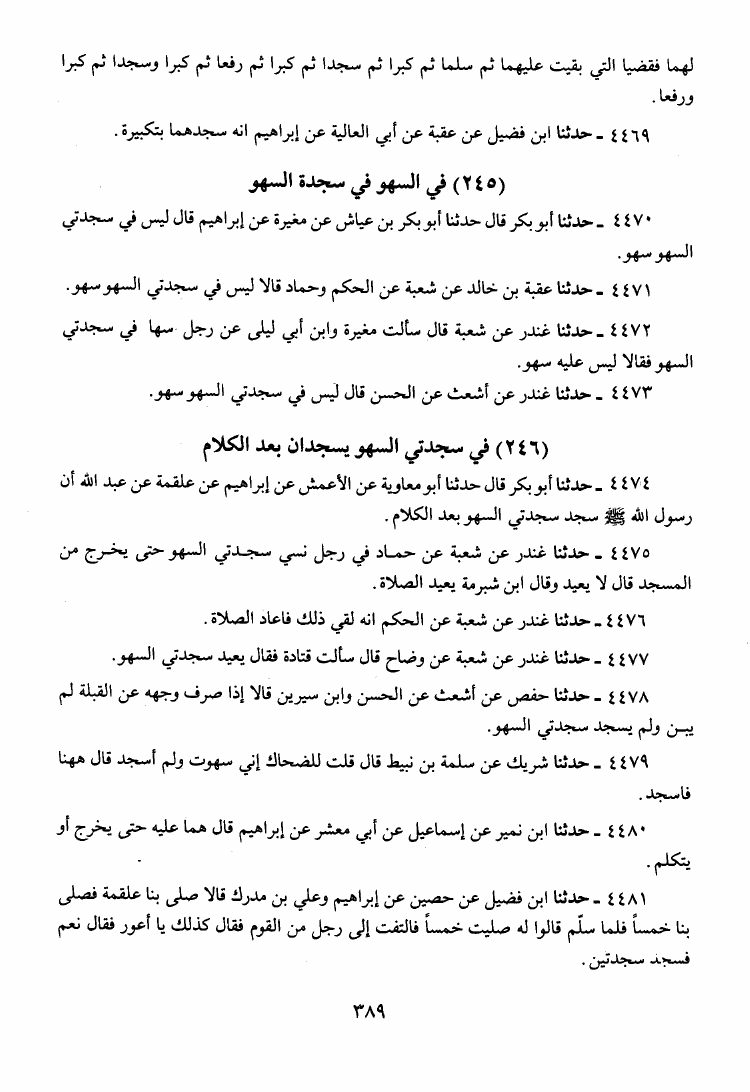 لهما فقضيا التي بقيت عليهما ثم سلما ثم كبرا ثم سجدا ثم كبرا ثم رفعا ثم كبرا وسجدا ثم كبرا
ورفعا.
٤٤٦٩ ـ حدثنا ابن فضيل عن عقبة عن أبي العالية عن إبراهيم انه سجدهما بتكبيرة.
(٢٤٥) في السهو في سجدة السهو
٤٤٧٠ ـ حدثنا أبو بكر قال حدثنا أبو بكر بن عياش عن مغيرة عن إبراهيم قال ليس في سجدتي
السهو سهو.
٤٤٧١ ـ حدثنا عقبة بن خالد عن شعبة عن الحكم وحماد قالا ليس في سجدتي السهو سهو.
٤٤٧٢ ـ حدثنا غندر عن شعبة قال سألت مغيرة وابن أبي ليلى عن رجل سها في سجدتي
السهو فقالا ليس عليه سهو.
٤٤٧٣ ـ حدثنا غندر عن أشعث عن الحسن قال ليس في سجدتي السهو سهو.
(٢٤٦) في سجدتي السهو يسجدان بعد الكلام
٤٤٧٤ ـ حدثنا أبو بكر قال حدثنا أبو معاوية عن الأعمش عن إبراهيم عن علقمة عن عبد الله أن
رسول الله ﷺ سجد سجدتي السهو بعد الكلام.
٤٤٧٥ ـ حدثنا غندر عن شعبة عن حماد في رجل نسي سجدتي السهو حتى يخرج من
المسجد قال لا يعيد وقال ابن شبرمة يعيد الصلاة.
٤٤٧٦ ـ حدثنا غندر عن شعبة عن الحكم انه لقي ذلك فاعاد الصلاة.
٤٤٧٧ ـ حدثنا غندر عن شعبة عن وضاح قال سألت قتادة فقال يعيد سجدتي السهو.
٤٤٧٨ ـ حدثنا حفص عن أشعث عن الحسن وابن سيرين قالا إذا صرف وجهه عن القبلة لم
يبن ولم يسجد سجدتي السهو.
٤٤٧٩ ـ حدثنا شريك عن سلمة بن نبيط قال قلت للضحاك إني سهوت ولم أسجد قال ههنا
فاسجد.
٤٤٨٠ ـ حدثنا ابن نمير عن إسماعيل عن أبي معشر عن إبراهيم قال هما عليه حتى يخرج أو
يتكلم.
٤٤٨١ ـ حدثنا ابن فضيل عن حصين عن إبراهيم وعلي بن مدرك قالا صلى بنا علقمة فصلى
بنا خمساً فلما سلّم قالوا له صليت خمساً فالتفت إلى رجل من القوم فقال كذلك يا أعور فقال نعم
فسجد سجدتين.
٣٨٩